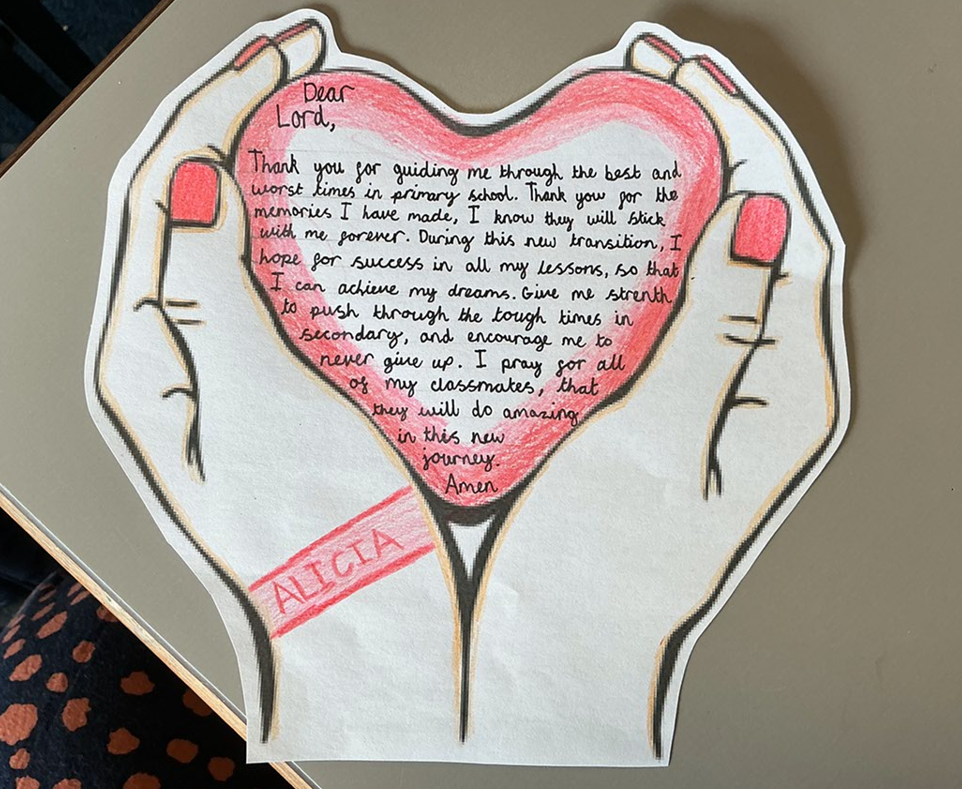 Dear
Lord,
Thank you for guiding me through the best and
worst times in primary school. Thank you for the
memories I have made, I know they will stick
with me forever. During this new transition, I
hope for success in all my lessons, so that
I can achieve my dreams. Give me strenth
to push through the tough times in
secondary, and encourage me to
never give up. I pray for all
of my classmates, that
they will do amazing
in this new
journey.
Amen
ALICIA